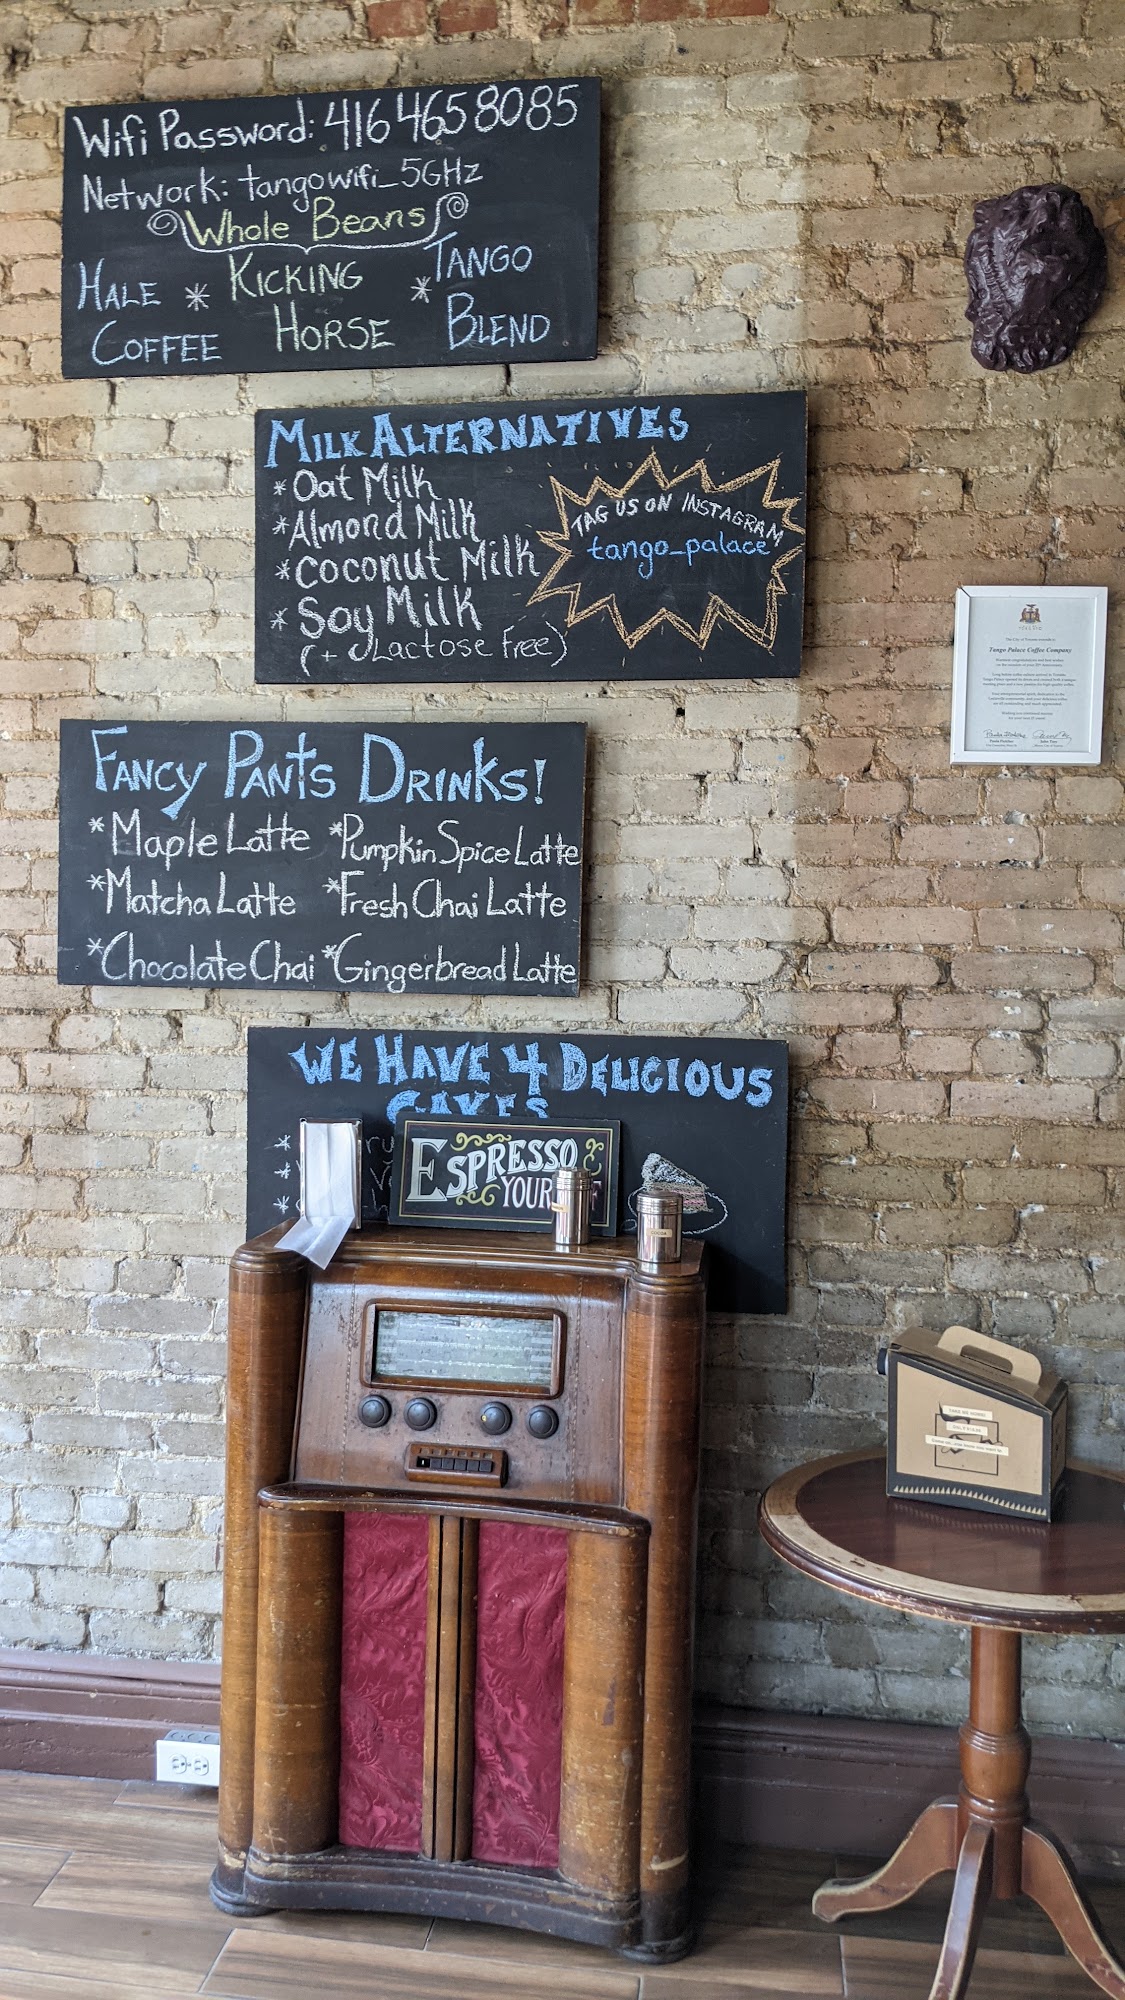 Wifi Password: 416 465 8085
Network: tangowifi_5GHz
Whole Beans
HALE COFFEE * KICKING HORSE * TANGO BLEND
MILK ALTERNATIVES
* Oat Milk
* Almond Milk
* Coconut Milk
* Soy Milk
(+ Lactose Free)
TAG US ON INSTAGRAM
tango_palace
FANCY PANTS DRINKS!
* Maple Latte
* Matcha Latte
* Chocolate Chai
* Pumpkin Spice Latte
* Fresh Chai Latte
* Gingerbread Latte
The City of Toronto extends to
Tango Palace Coffee Company
WE HAVE 4 DELICIOUS
CAKES
ESPRESSO
COCOA
TAKE ME HOME!